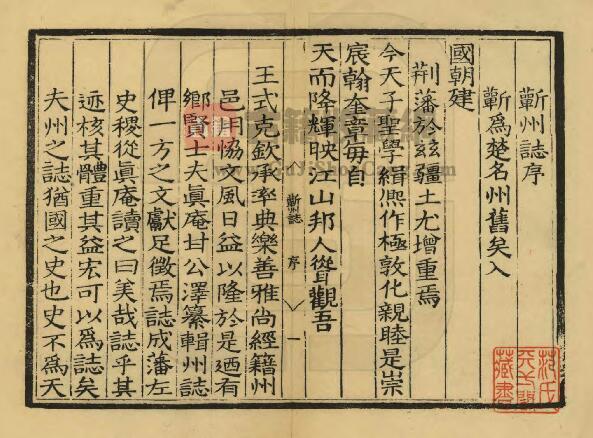 蘄州誌序
蘄爲楚名州舊矣入
國朝建
荆藩於兹疆土尤增重焉
今天子聖學緝熈作極敦化親睦是崇
宸翰奎章毎自
天而降輝映江山邦人聳觀吾
蘄誌 序 一
王式克欽承率典樂善雅尚經籍州
邑用恊文風日益以隆於是廼有
鄉賢士夫眞庵甘公澤纂輯州誌
俾一方之文獻足徵焉誌成藩左
史稷從眞庵讀之曰美哉誌乎其
迹核其體重其益宏可以爲誌矣
夫州之誌猶國之史也史不爲天
范氏
天一閣
藏書